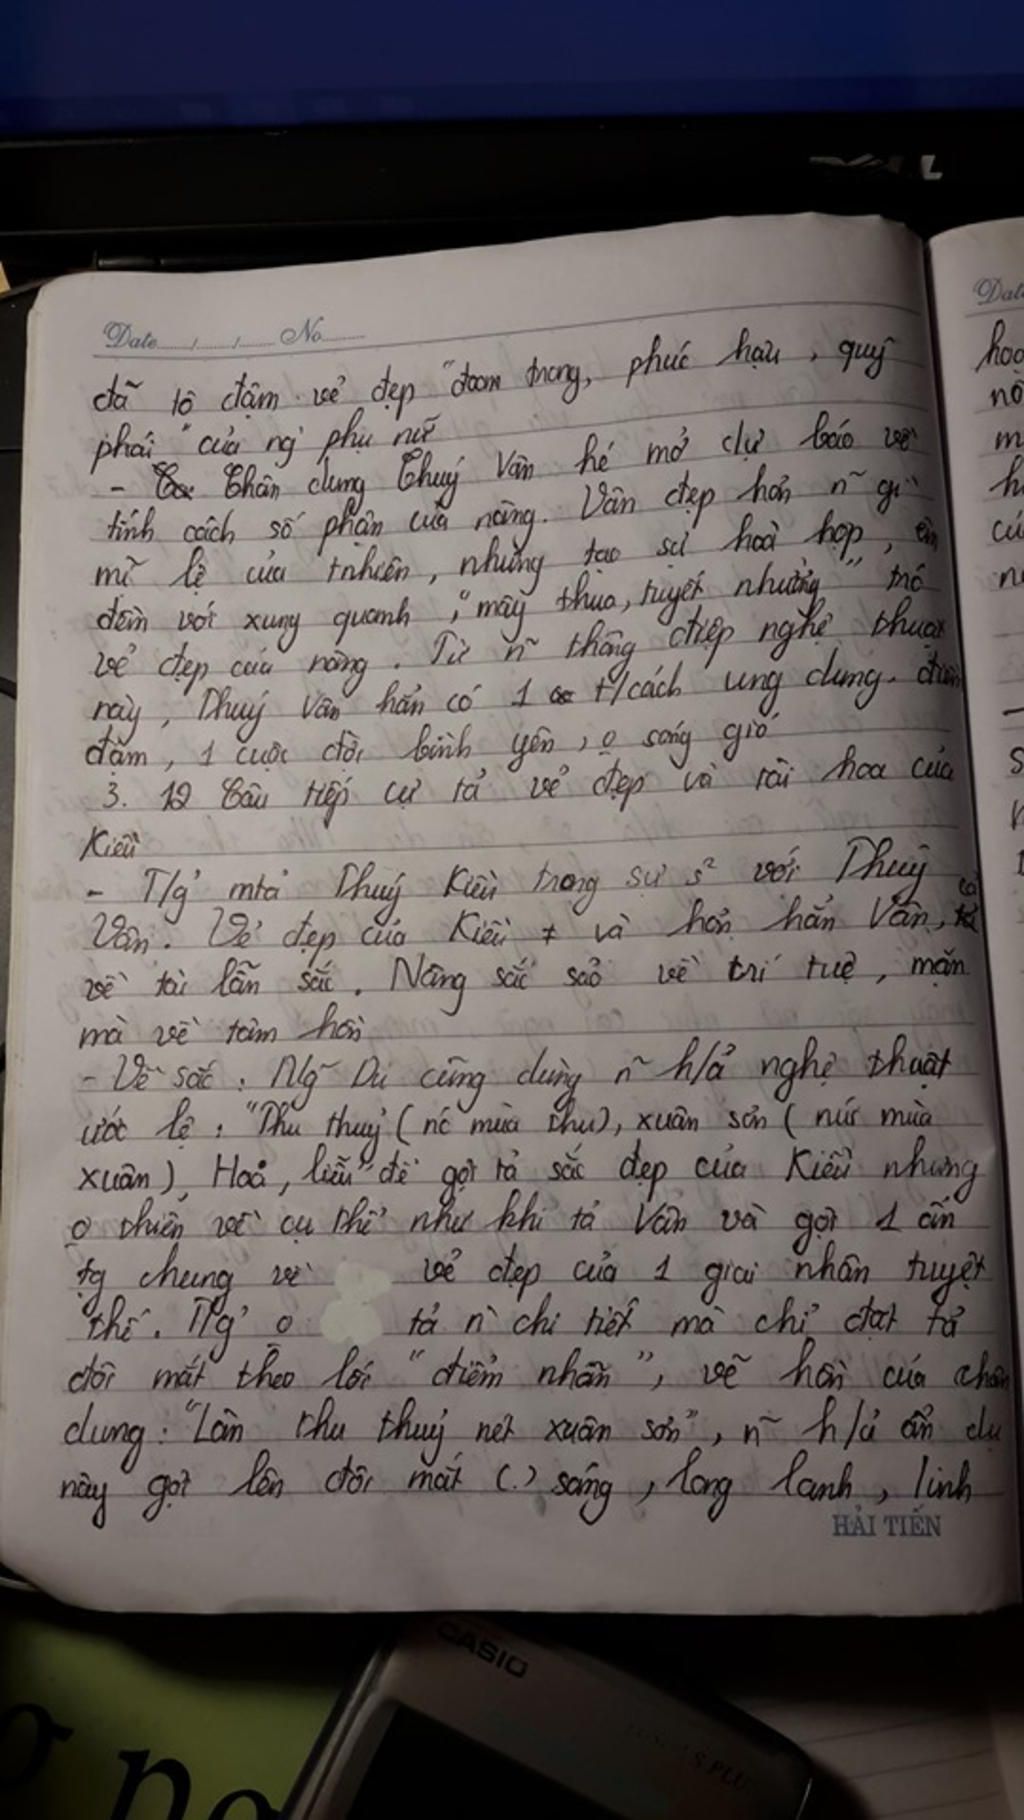 Date....../....../...... No..........
đã tô đậm vẻ đẹp "đoan trang, phúc hậu, quý
phái" của ng` phụ nữ
- Chân dung Thuý Vân hé mở dự báo về
tính cách số phận của nàng. Vân đẹp hơn n~ gì
mĩ lệ của tnhiên, nhưng tạo sự hoà hợp, êm
đềm với xung quanh, "mây thua, tuyết nhường" trc
vẻ đẹp của nàng. Từ n~ thông điệp nghệ thuật
này, Thuý Vân hẳn có 1 t/cách ung dung, điềm
đạm, 1 cuộc đời bình yên, o sóng gió
3. 12 Câu tiếp cự tả vẻ đẹp và tài hoa của
Kiều
- T/g' mtả Thuý Kiều trong sự s² với Thuý
Vân. Vẻ đẹp của Kiều ≠ và hơn hẳn Vân, cả
về tài lẫn sắc. Nàng sắc sảo về trí tuệ, mặn
mà về tâm hồn
- Về sắc: Ng~ Du cũng dùng n~ h/ả nghệ thuật
ước lệ: "Thu thuỷ (nc mùa thu), xuân sơn (núi mùa
xuân), Hoa, liễu" để gợi tả sắc đẹp của Kiều nhưng
o thiên về cụ thể như khi tả Vân và gợi 1 ấn
tg chung về vẻ đẹp của 1 giai nhân tuyệt
thế. T/g' o tả n` chi tiết mà chỉ đặt tả
đôi mắt theo lối "điểm nhãn", vẽ hồn của chân
dung: "Làn thu thuỷ nét xuân sơn", n~ h/ả ẩn dụ
này gợi lên đôi mắt (.) sáng, long lanh, linh
HẢI TIẾN
Date
hoa
m
h
S
CASIO